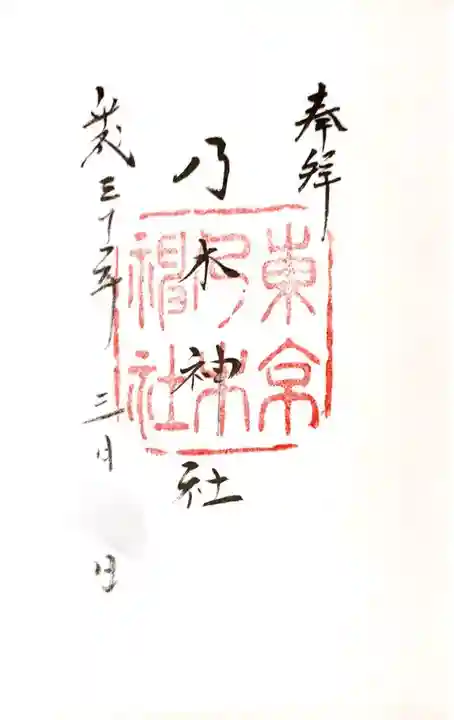 奉拝
乃木神社
東京
乃木
神社
平成三十年 三月 日